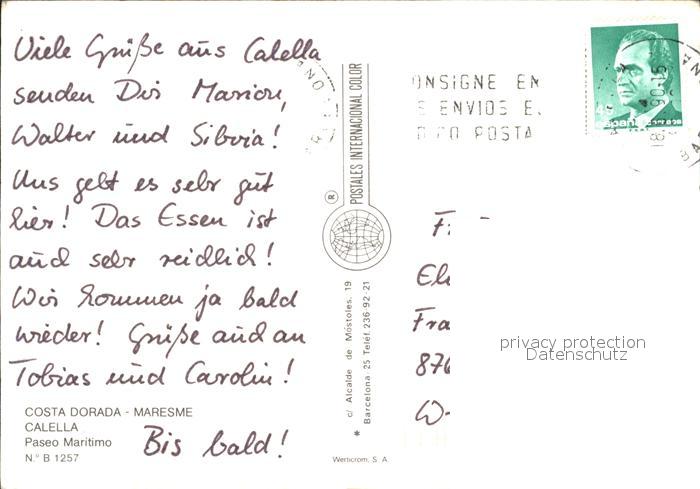 Viele Grüße aus Calella
senden Dir Marion,
Walter und Silvia!
Uns geht es sehr gut
hier! Das Essen ist
auch sehr reichlich!
Wir kommen ja bald
wieder! Grüße auch an
Tobias und Carolin!
Bis bald!
COSTA DORADA - MARESME
CALELLA
Paseo Marítimo
N.º B 1257
® POSTALES INTERNACIONAL COLOR
c/ Alcalde de Móstoles, 19
Barcelona - 25 Teléf. 236-92-21
*
Werticrom, S. A.
ONSIGNE EN
S ENVIOS E
DIGO POSTA
España correos
90-15
Fra
876
W-
privacy protection
Datenschutz